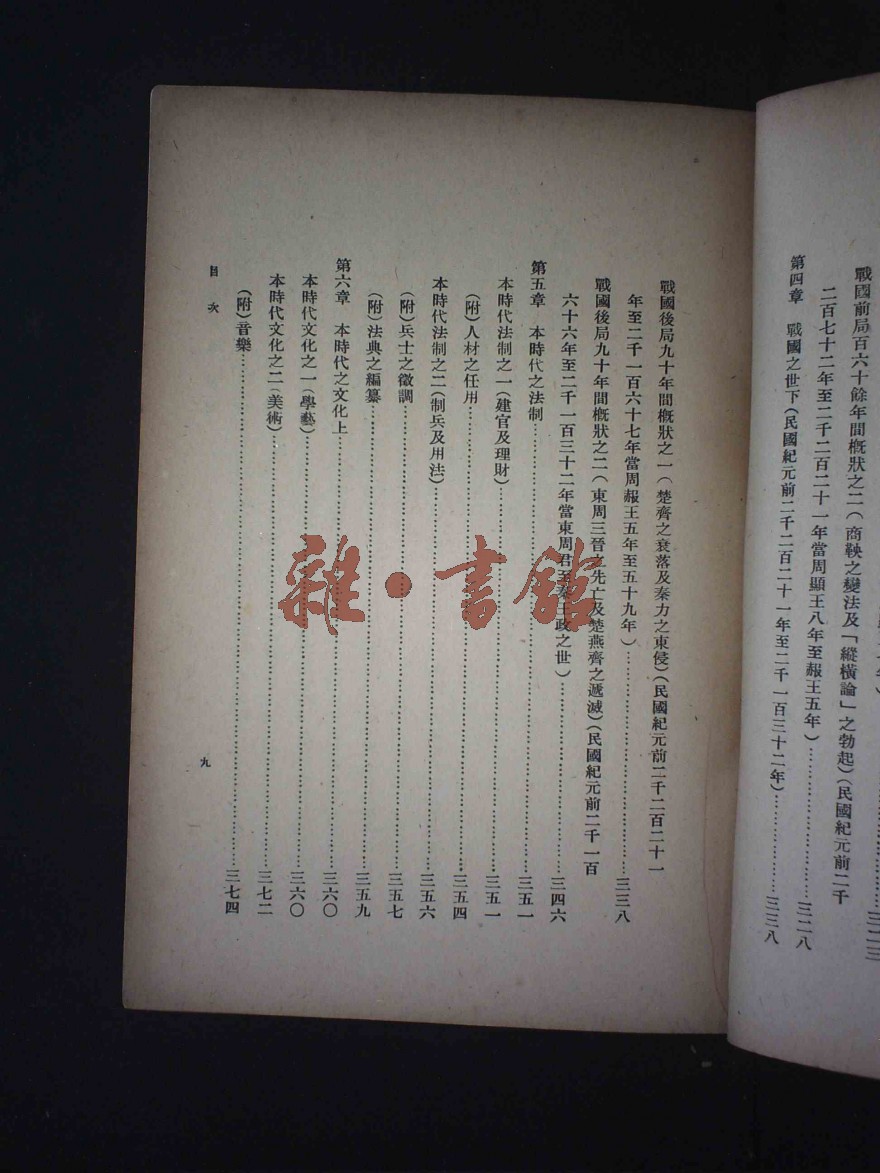 戰國前局百六十餘年間概狀之二(商鞅之變法及「縱橫論」之勃起)(民國紀元前二千
二百七十二年至二千二百二十一年當周顯王八年至赧王五年)……………三二八
第四章　戰國之世下(民國紀元前二千二百二十一年至二千一百三十二年)……………三三八
戰國後局九十年間概狀之一(楚齊之衰落及秦力之東侵)(民國紀元前二千二百二十一
年至二千一百六十七年當周赧王五年至五十九年)……………三三八
戰國後局九十年間概狀之二(東周三晉之先亡及楚燕齊之遞滅)(民國紀元前二千一百
六十六年至二千一百三十二年當東周君至秦王政之世)……………三四六
第五章　本時代之法制……………三五一
本時代法制之一(建官及理財)……………三五一
(附)人材之任用……………三五四
本時代法制之二(制兵及用法)……………三五六
(附)兵士之徵調……………三五七
(附)法典之編纂……………三五九
第六章　本時代之文化上……………三六〇
本時代文化之一(學藝)……………三六〇
本時代文化之二(美術)……………三七二
(附)音樂……………三七四
目次
九
雜·書館